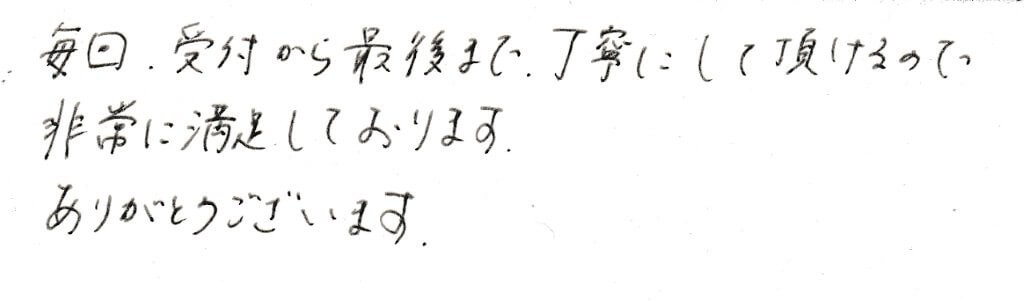 毎回、受付から最後まで、丁寧にして頂けるので
非常に満足しております。
ありがとうございます。